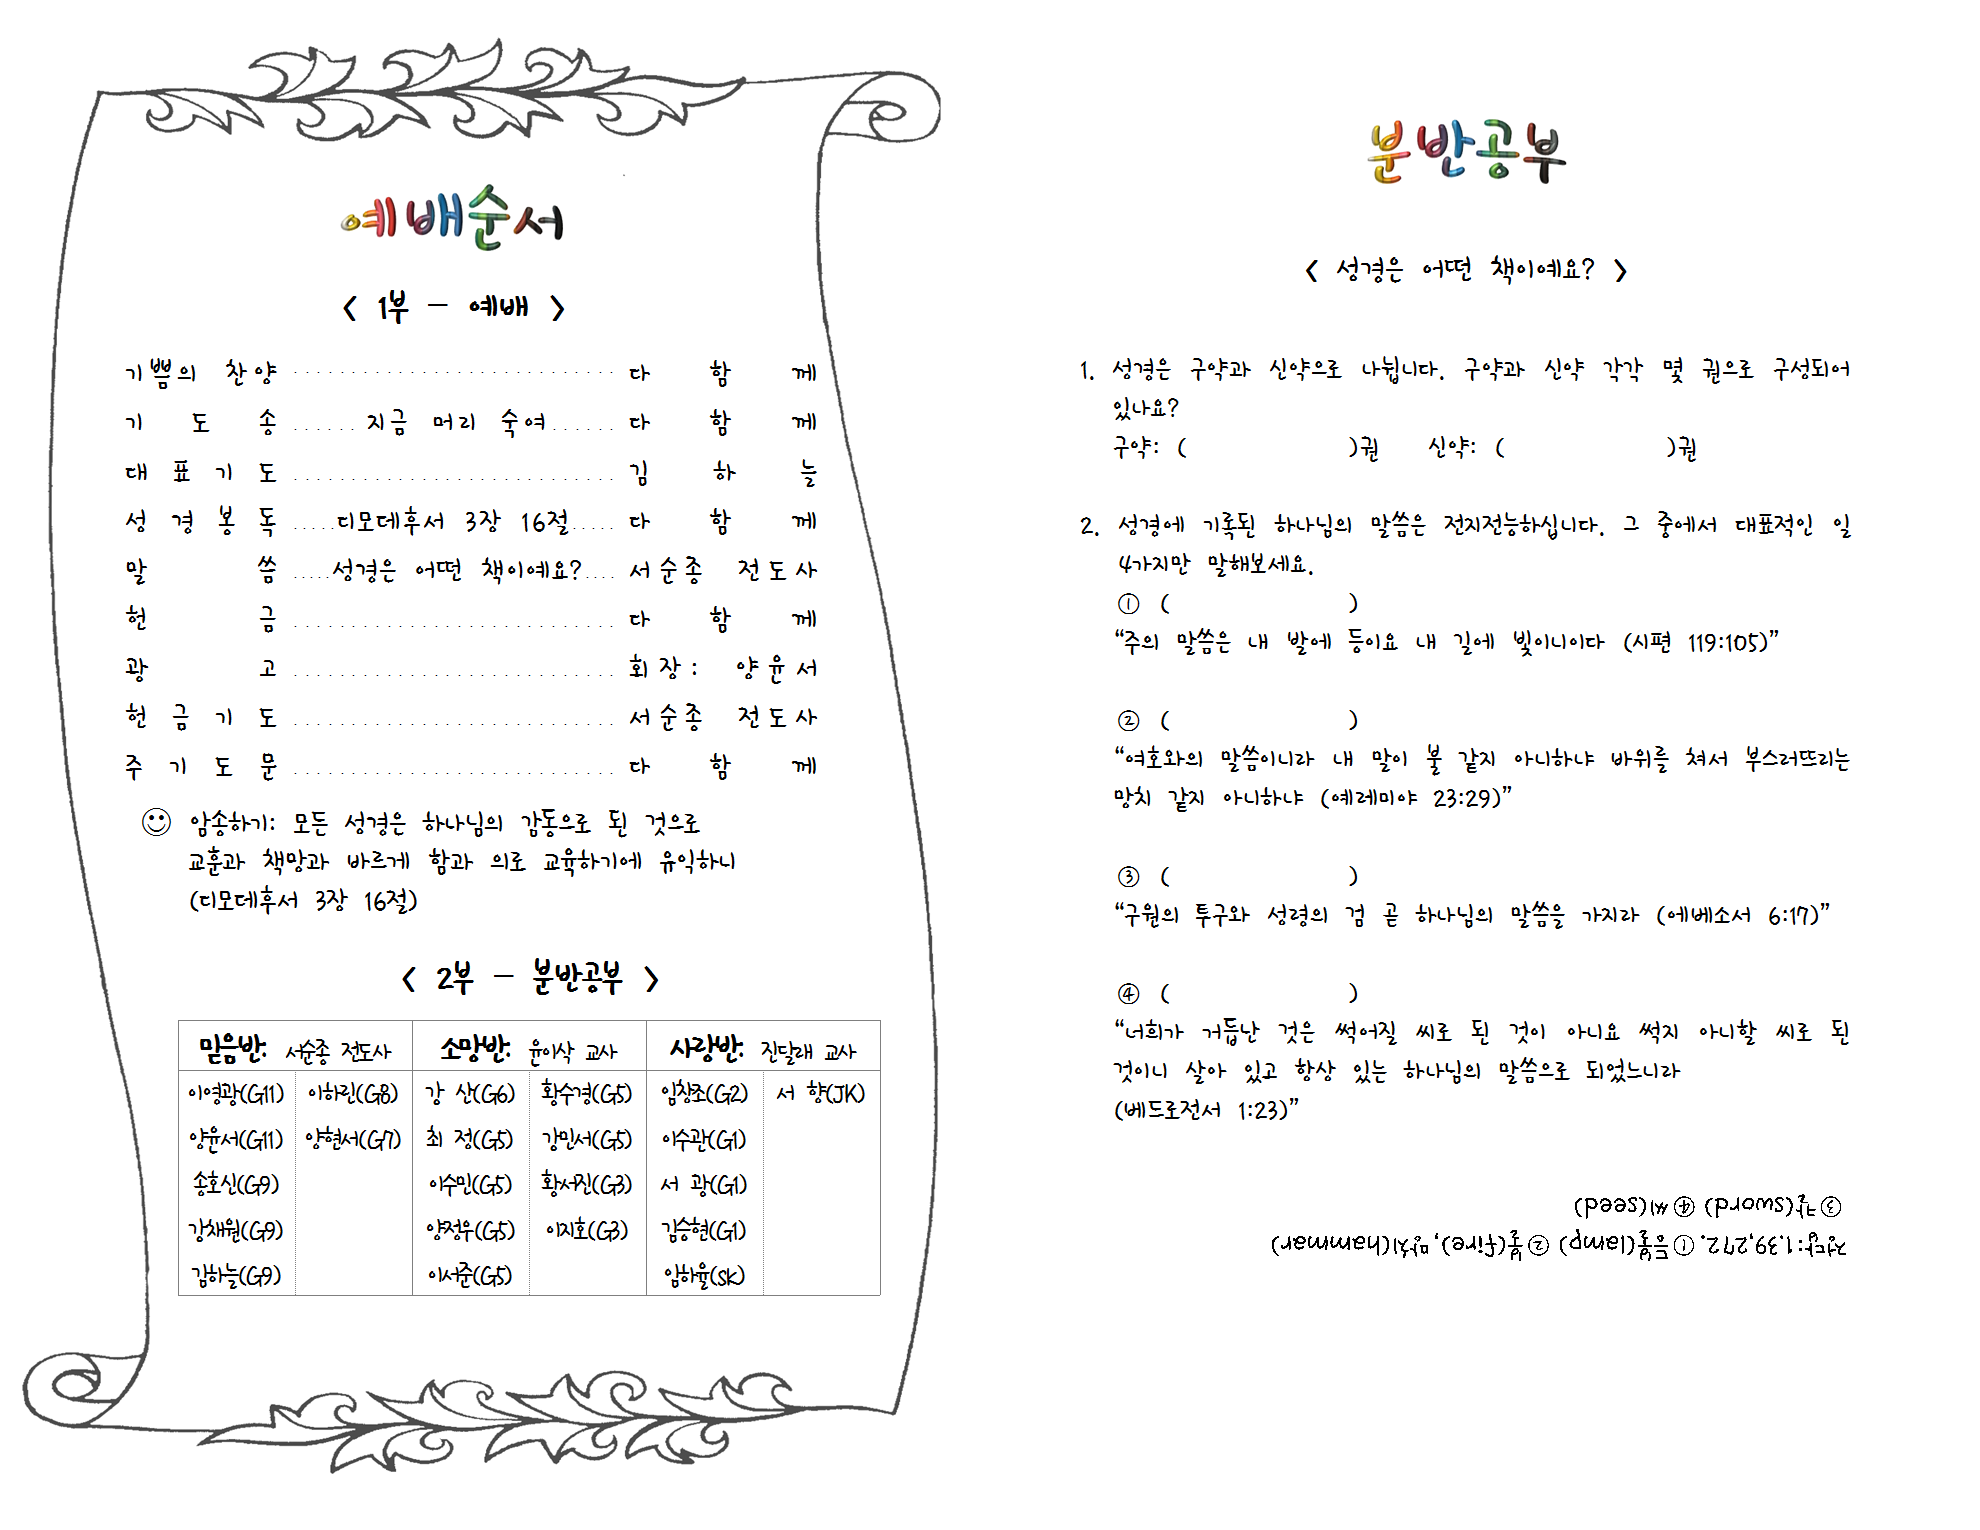 예배순서
< 1부 - 예배 >
기쁨의 찬양 ............................ 다 함 께
기 도 송 ...... 지금 머리 숙여 ...... 다 함 께
대 표 기 도 ............................ 김 하 늘
성 경 봉 독 .....디모데후서 3장 16절..... 다 함 께
말 씀 .....성경은 어떤 책이예요?.... 서순종 전도사
헌 금 ............................ 다 함 께
광 고 ............................ 회장: 양윤서
헌 금 기 도 ............................ 서순종 전도사
주 기 도 문 ............................ 다 함 께
☺ 암송하기: 모든 성경은 하나님의 감동으로 된 것으로
교훈과 책망과 바르게 함과 의로 교육하기에 유익하니
(디모데후서 3장 16절)
< 2부 - 분반공부 >
믿음반: 서순종 전도사 소망반: 윤이삭 교사 사랑반: 진달래 교사
이영광(G11) 이하린(G8) 강 산(G6) 황수경(G5) 임창조(G2) 서 향(JK)
양윤서(G11) 양현서(G7) 최 정(G5) 강민서(G5) 이수관(G1)
송호신(G9) 이수민(G5) 황서진(G3) 서 광(G1)
강채원(G9) 양정우(G5) 이지호(G3) 김승현(G1)
김하늘(G9) 이서준(G5) 임하율(SK)
분반공부
< 성경은 어떤 책이예요? >
1. 성경은 구약과 신약으로 나뉩니다. 구약과 신약 각각 몇 권으로 구성되어
있나요?
구약: ( )권 신약: ( )권
2. 성경에 기록된 하나님의 말씀은 전지전능하십니다. 그 중에서 대표적인 일
4가지만 말해보세요.
① ( )
“주의 말씀은 내 발에 등이요 내 길에 빛이니이다 (시편 119:105)”
② ( )
“여호와의 말씀이니라 내 말이 불 같지 아니하냐 바위를 쳐서 부스러뜨리는
망치 같지 아니하냐 (예레미야 23:29)”
③ ( )
“구원의 투구와 성령의 검 곧 하나님의 말씀을 가지라 (에베소서 6:17)”
④ ( )
“너희가 거듭난 것은 썩어질 씨로 된 것이 아니요 썩지 아니할 씨로 된
것이니 살아 있고 항상 있는 하나님의 말씀으로 되었느니라
(베드로전서 1:23)”
정답:1.39,27 2. ①등불(lamp) ②불(fire), 망치(hammar)
③칼(sword) ④씨(seed)